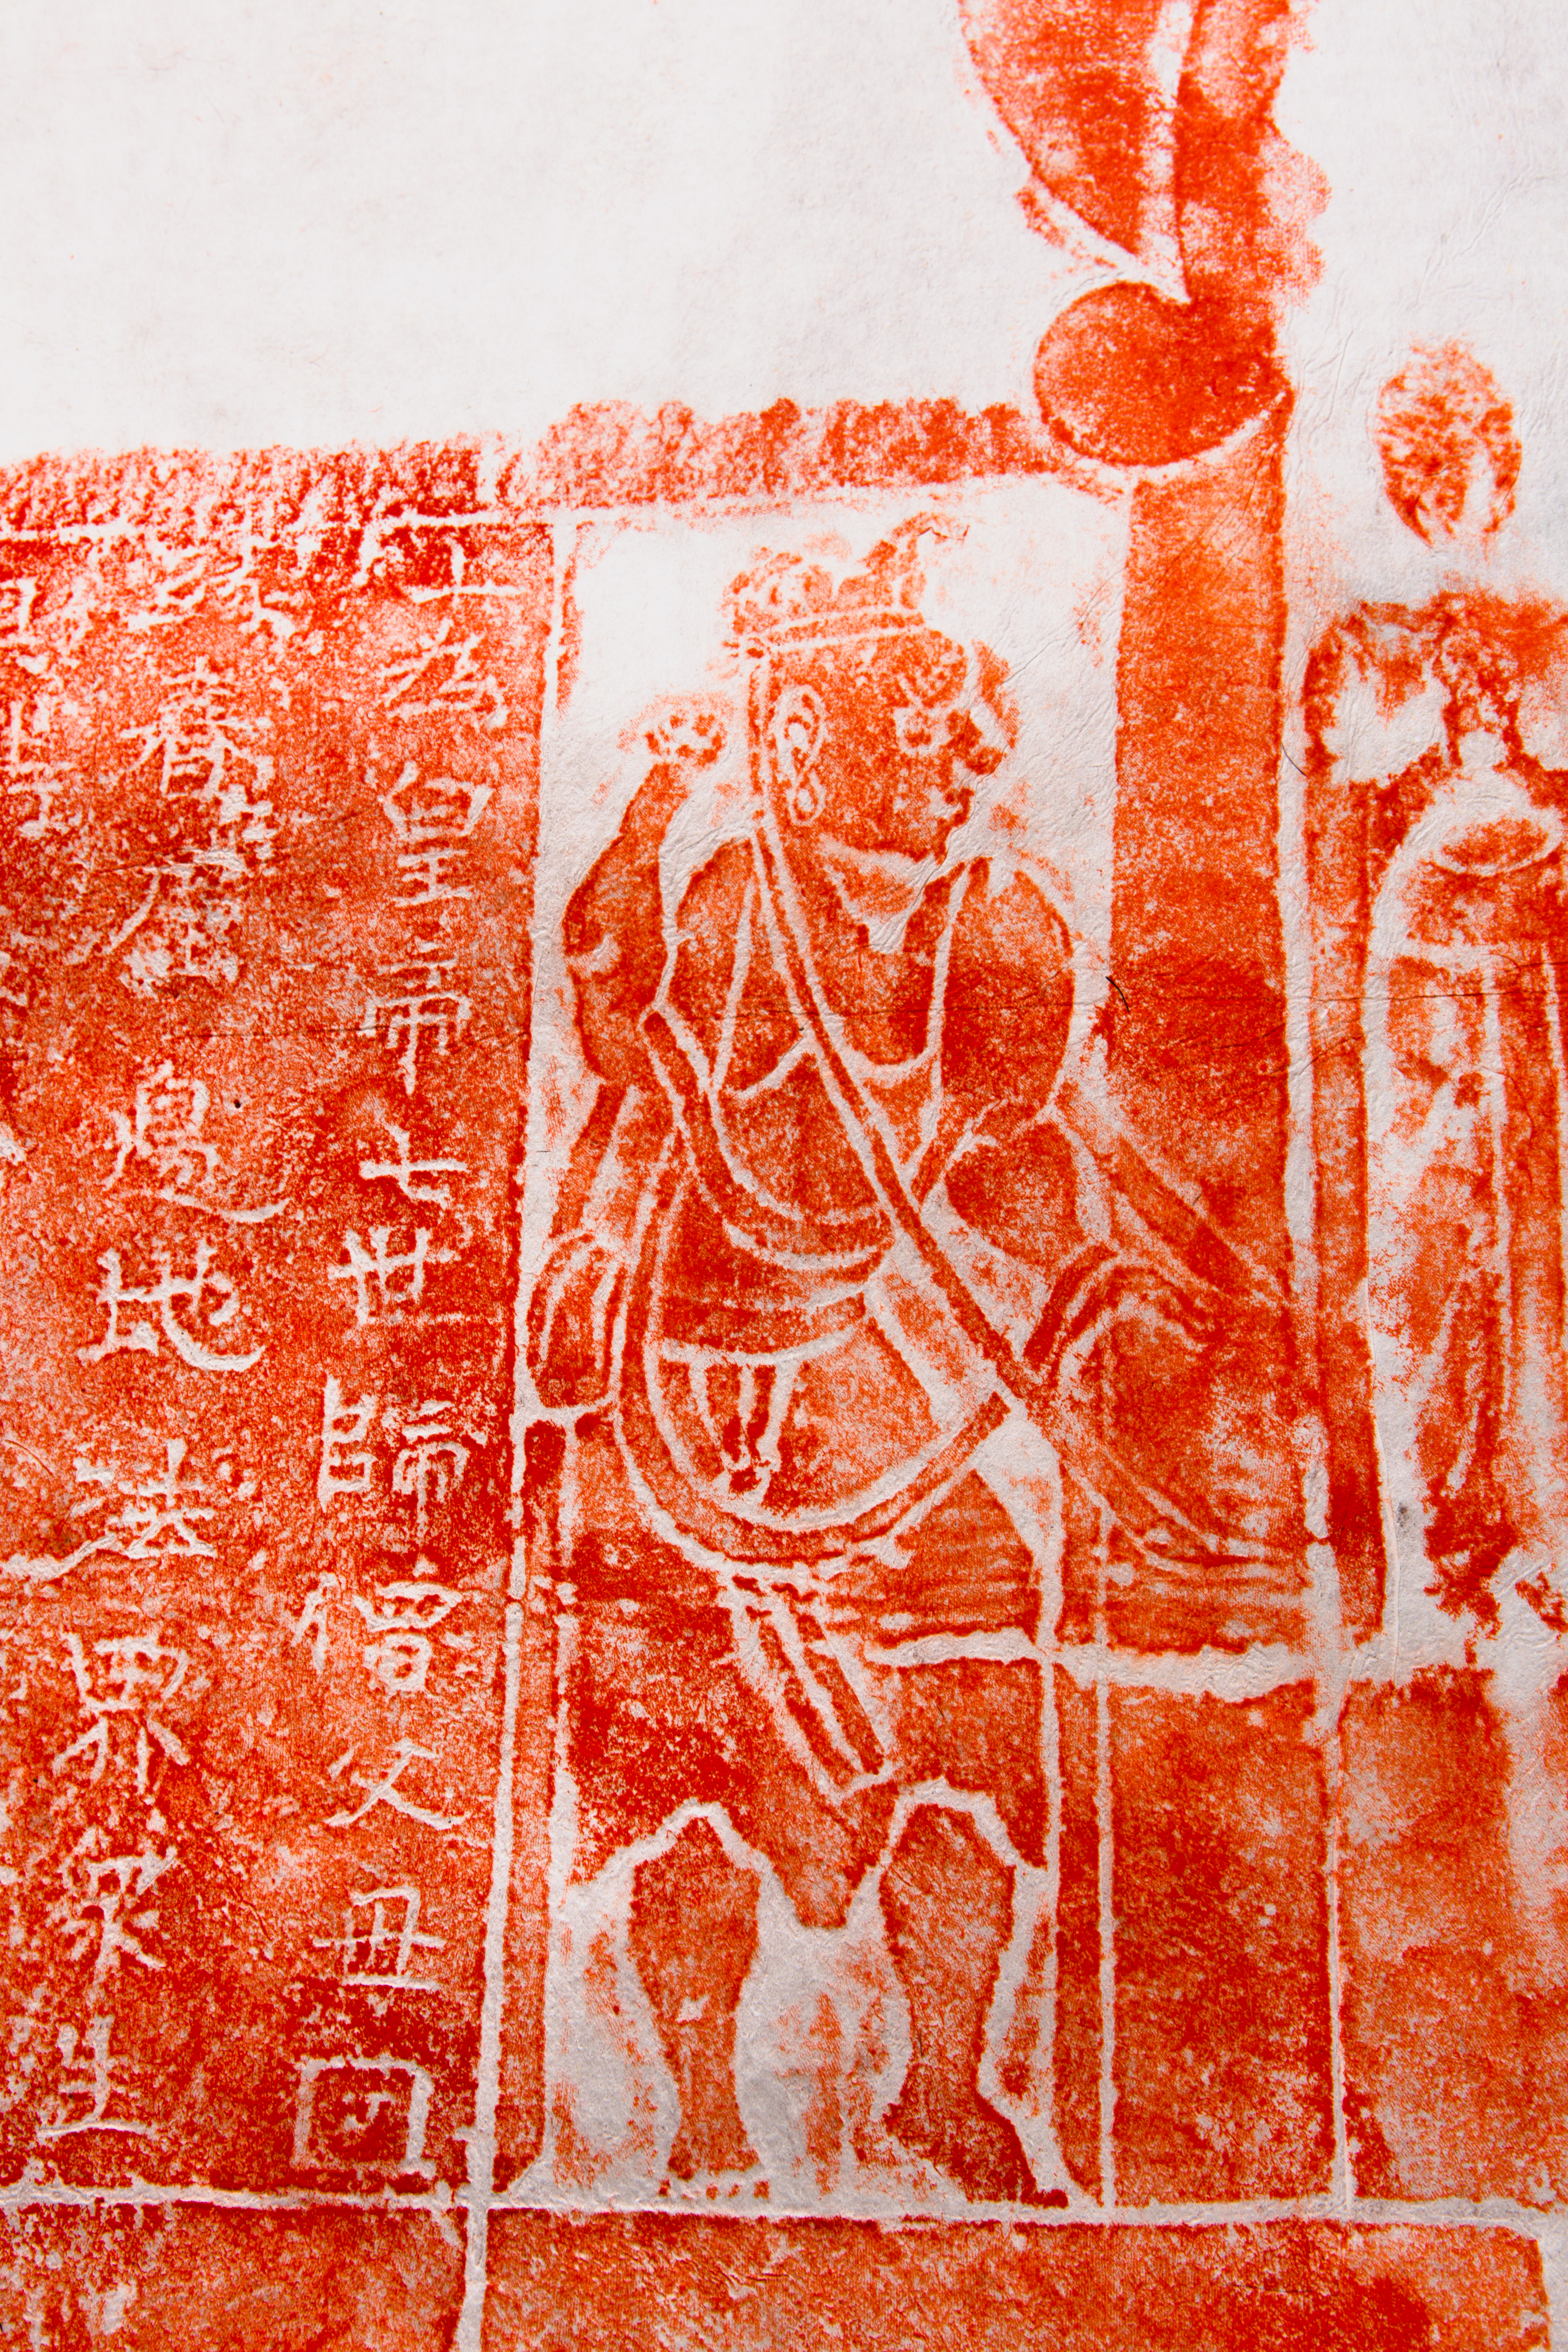 上為皇帝七世師僧父母因
緣眷屬邊地法界眾生